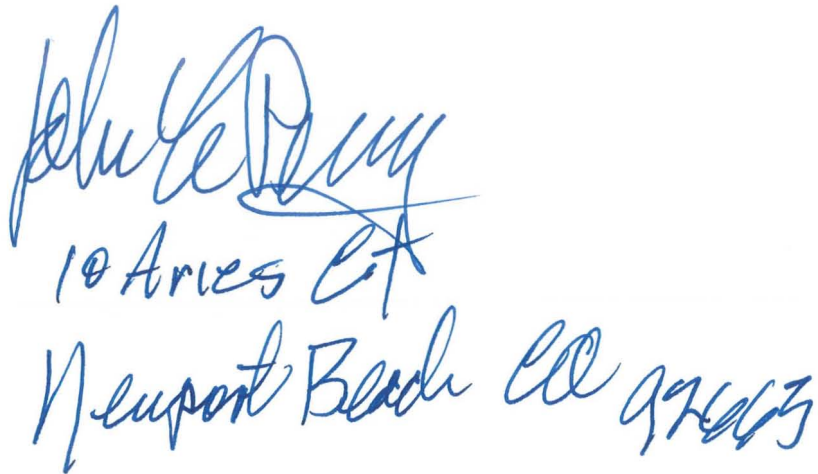 John
10 Aries Ct
Newport Beach CA 92663